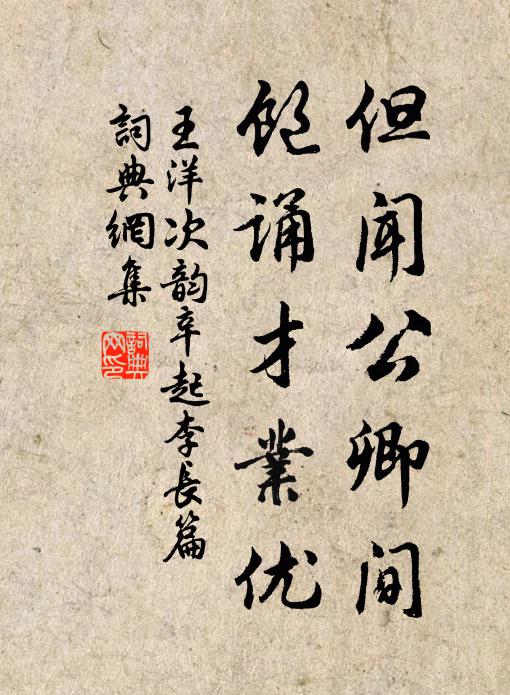 但闻公卿间
饱诵才业优
王洋次韵辛起李长篇
詞典網集
詞典网印